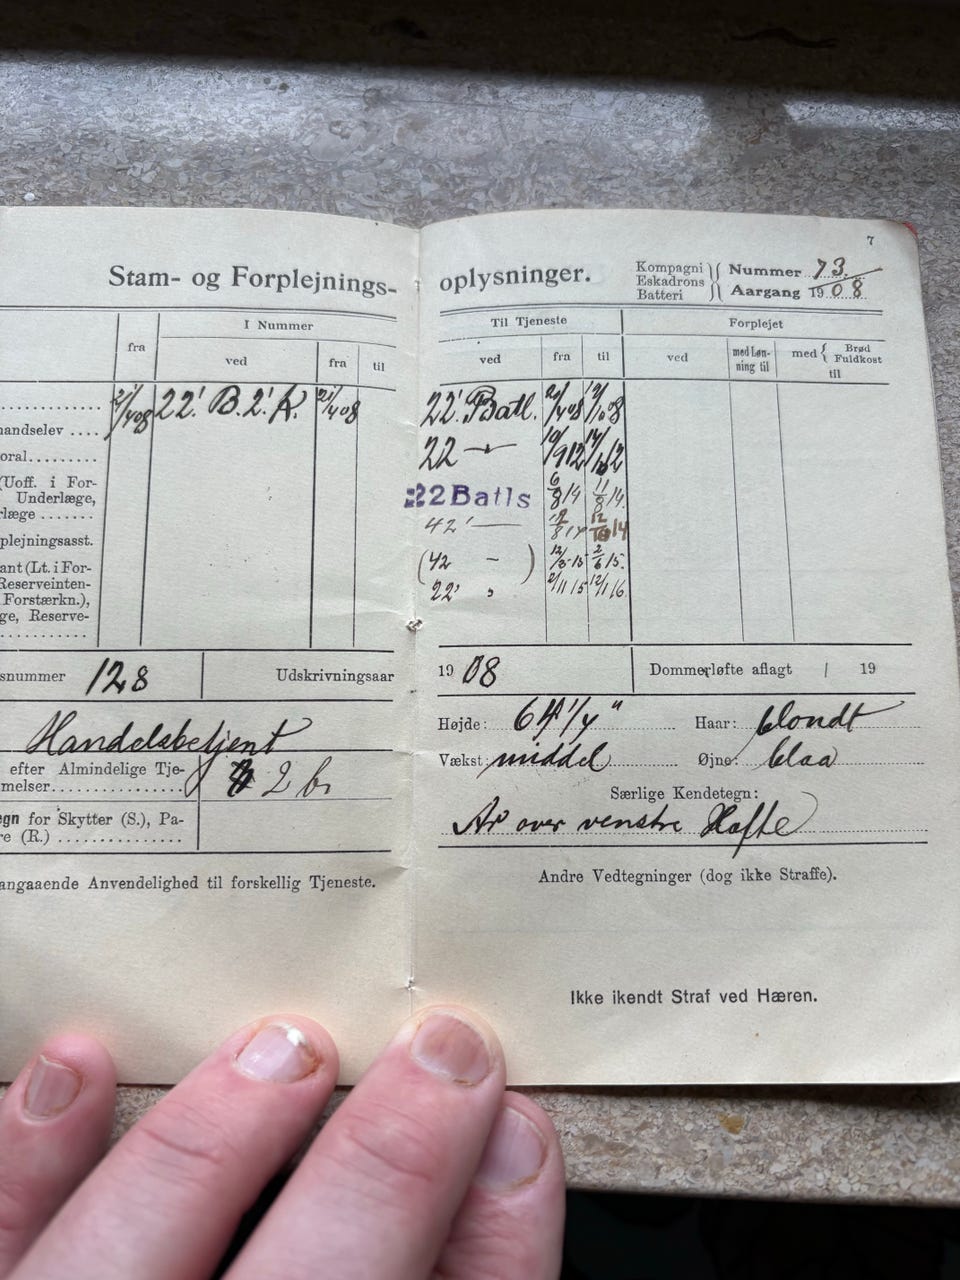 7
Stam- og Forplejnings-
oplysninger.
Kompagni
Eskadrons
Batteri
Nummer 73.
Aargang 1908
fra
I Nummer
ved
fra
til
Til Tjeneste
ved
fra
til
Forplejet
ved
med Løn-
ning til
med { Brød
Fuldkost
til
21/4 08 22' B. 2' K. 21/4 08
andselev ....
oral.........
(Uoff. i For-
Underlæge,
læge .......
plejningsasst.
ant (Lt. i For-
Reserveinten-
Forstærkn.),
ge, Reserve-
............
22' Batl. 21/4 08
22 — 19/9 12
22 Batls 6/8 14 11/8 14.
42' — 12/8 14 12/10 14
(42 — ) 12/3-15 2/6 15.
22' " 2/11 15 12/1 16.
snummer 128
Udskrivningsaar
1908
Dommerløfte aflagt / 19
Handelsbetjent
efter Almindelige Tje-
melser............... 2 b,
egn for Skytter (S.), Pa-
re (R.) ...............
Højde: 64 1/4" Haar: blondt
Vækst: middel Øjne: blaa
Særlige Kendetegn:
Ar over venstre Hofte
angaaende Anvendelighed til forskellig Tjeneste.
Andre Vedtegninger (dog ikke Straffe).
Ikke ikendt Straf ved Hæren.